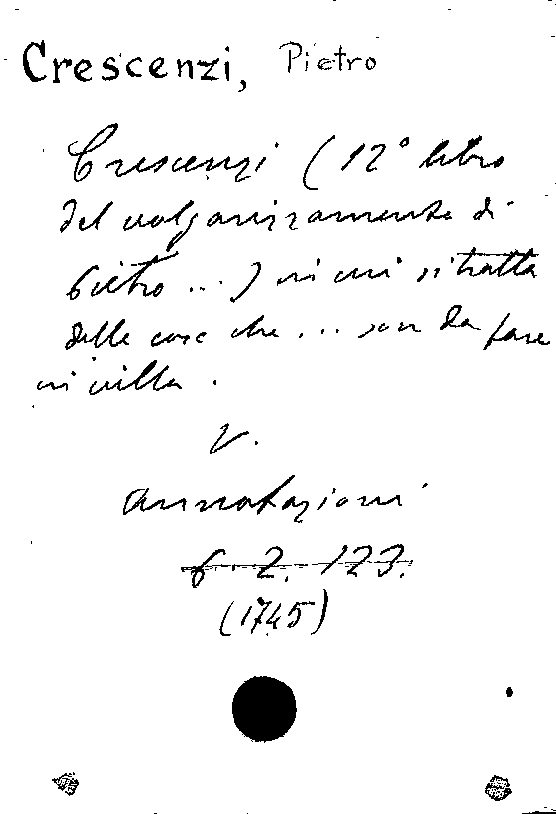 Crescenzi, Pietro
Crescenzi (12° libro
del volgarizzamento di
Pietro ...) in cui si tratta
delle cose che ... son da fare
in villa.
V.
Annotazioni
6. 2. 123.
(1745)